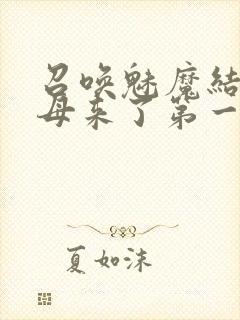 召唤魅魔结
母来了第一
夏如沫